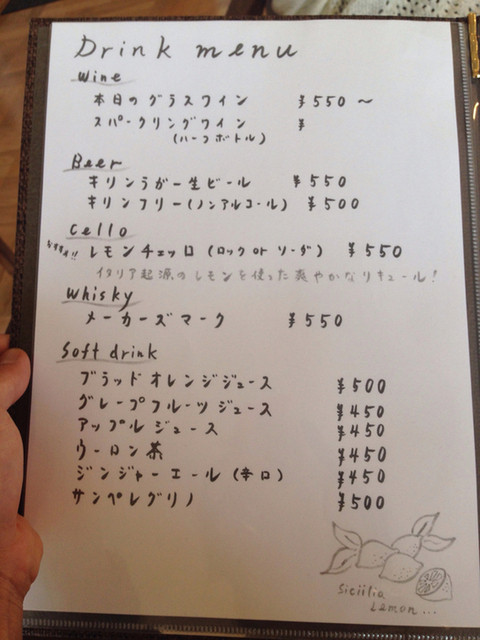 Drink menu
Wine
本日のグラスワイン ¥550～
スパークリングワイン ¥
(ハーフボトル)
Beer
キリンラガー生ビール ¥550
キリンフリー(ノンアルコール) ¥500
Cello
おすすめ!! レモンチェッロ (ロック or ソーダ) ¥550
イタリア起源のレモンを使った爽やかなリキュール!
Whisky
メーカーズマーク ¥550
Soft drink
ブラッドオレンジジュース ¥500
グレープフルーツジュース ¥450
アップルジュース ¥450
ウーロン茶 ¥450
ジンジャーエール (辛口) ¥450
サンペレグリノ ¥500
Siciilia
Lemon...